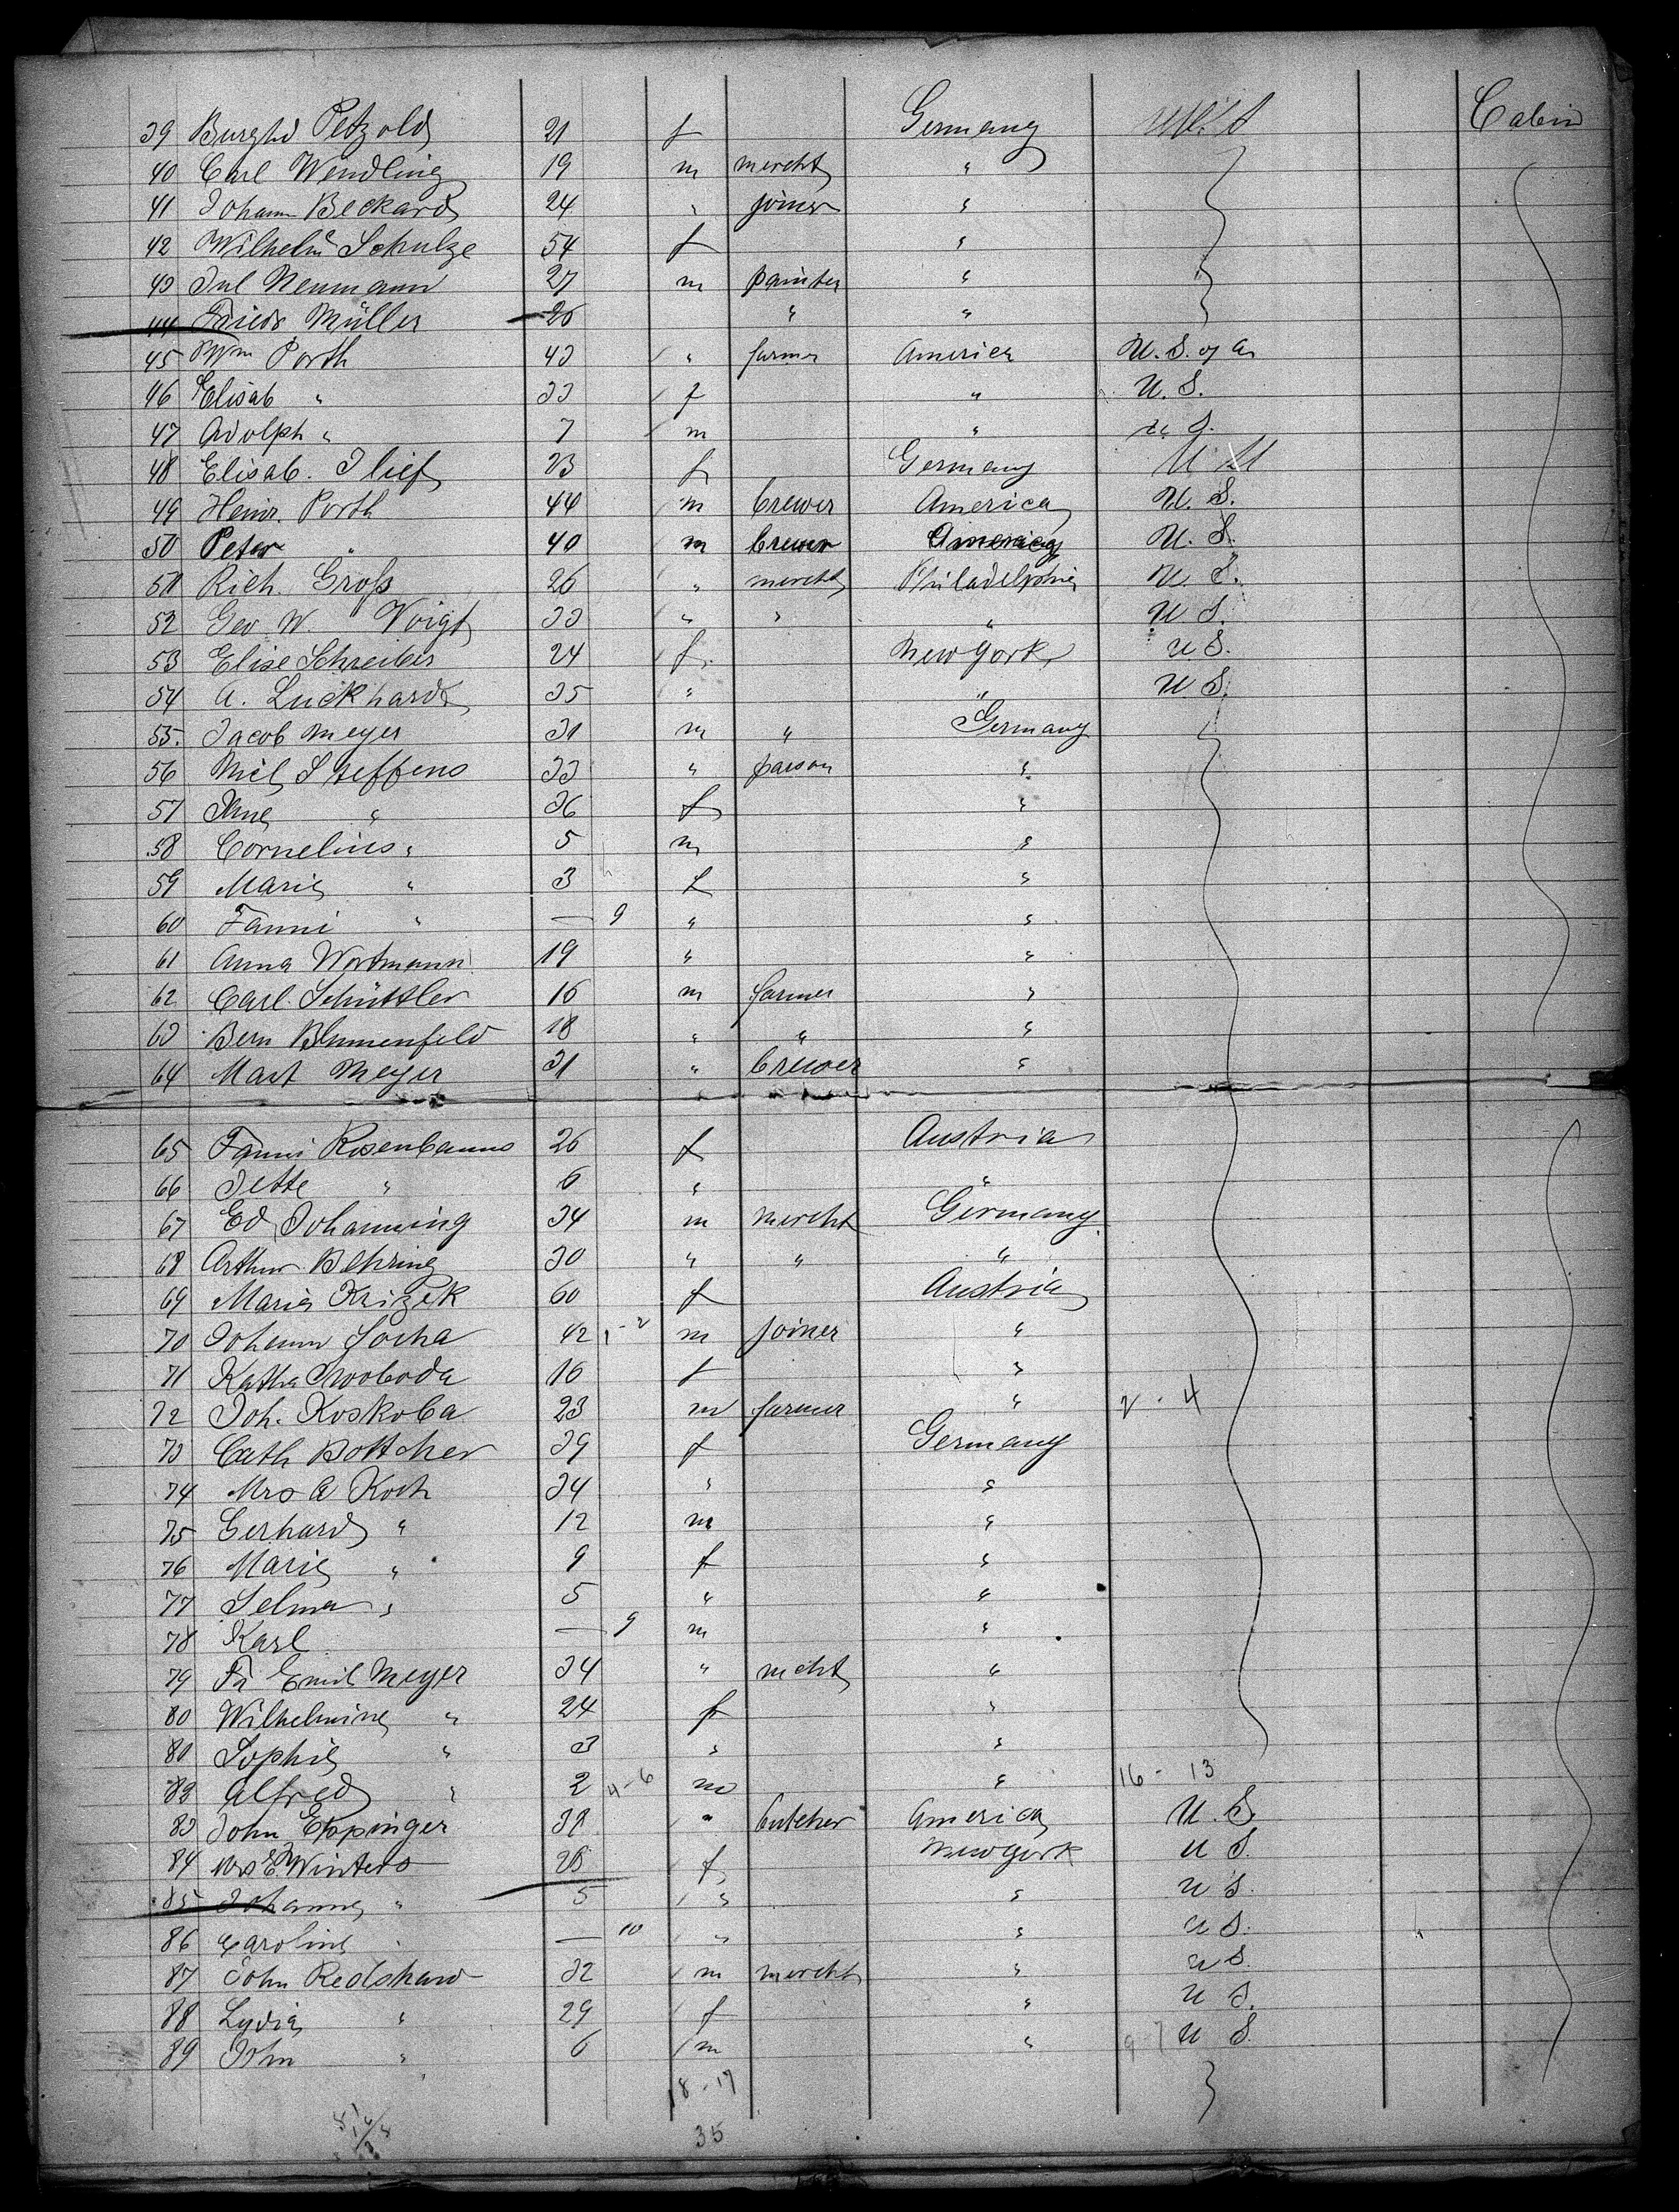 39 Burghd Petzold 21 f Germany Cabin
40 Carl Wendling 19 m mercht "
41 Johann Beckard 24 " joiner "
42 Wilhelm Schulze 54 f "
43 Jul Neumann 27 m painter "
44 Friedr Müller 26 " "
45 Wm Porth 43 " farmer America U. S. of A
46 Elisab " 33 f " U. S.
47 Adolph " 7 m " U. S.
48 Elisab. Ilief 23 f Germany
49 Heinr. Porth 44 m brewer America U. S.
50 Peter " 40 m brewer America U. S.
51 Rich. Groß 26 " mercht Philadelphia U. S.
52 Geo W. Voigt 33 " " " U S.
53 Elise Schreiber 24 f. New York U S.
54 A. Luckhardt 35 " " U S.
55. Jacob Meyer 31 m " Germany
56 Steffens 33 " parson "
57 " 36 f "
58 Cornelius " 5 m "
59 Marie " 3 f "
60 Fanni " — 9 " "
61 Anna Wortmann 19 " "
62 Carl Schüttler 16 m farmer "
63 Bern Blumenfeld 18 " " "
64 Mart Meyer 31 " brewer "
65 Fanni Rosenbaum 26 f Austria
66 Jette " 6 " "
67 Ed Johanning 34 m mercht Germany
68 Arthur Behring 30 " " "
69 Maria Krizek 60 f Austria
70 Johann Socha 42 1-2 m joiner "
71 Katha Swoboda 16 f "
72 Joh. Koskoba 23 m farmer " 2 - 4
73 Cath Bottcher 39 f Germany
74 Mrs A Koch 34 " "
75 Gerhard " 12 m "
76 Marie " 9 f "
77 Selma " 5 " "
78 Karl — 9 m "
79 Fr Emil Meyer 34 " mcht "
80 Wilhelmine " 24 f "
80 Sophie " 3 " "
82 Alfred " 2 4-6 m " 16 - 13
83 John Eppinger 38 " butcher America U. S.
84 Mrs E Winters 28 f New York U S.
85 Johanna " 5 " " U S.
86 Caroline " — 10 " " U S.
87 John Redshaw 32 m mercht " U S.
88 Lydia " 29 f " U S.
89 John " 6 m " 9-7 U S.
18 - 17
35